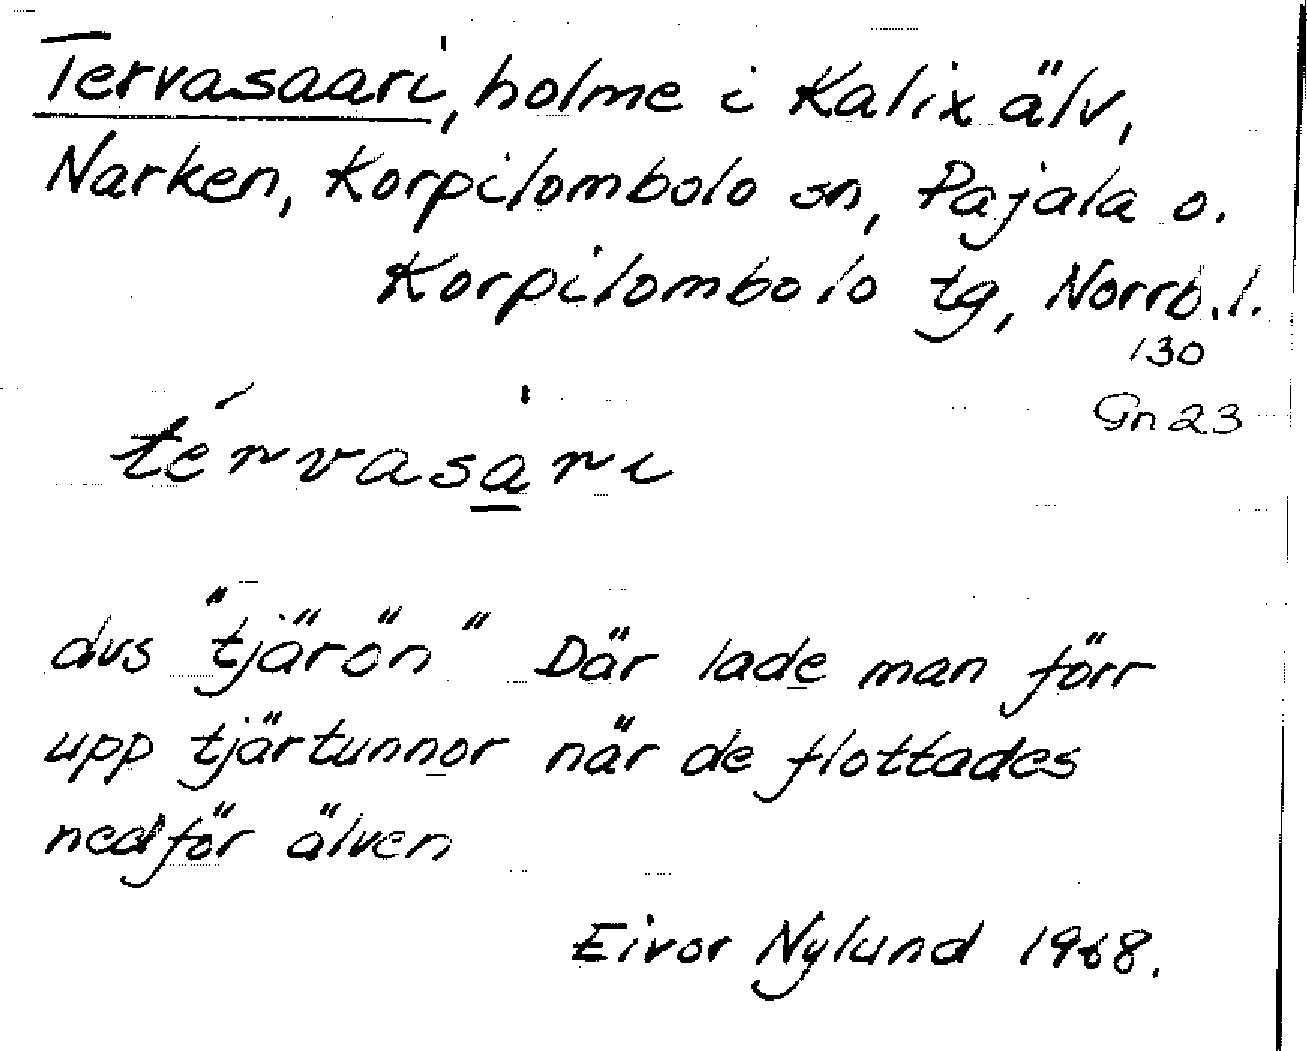 Tervasaari, holme i Kalix älv,
Narken, Korpilombolo sn, Pajala o.
Korpilombolo tg, Norrb.l.
130
Gn 23
térvasa̱ri
dvs "tjärön" Där lade man förr
upp tjärtunnor när de flottades
nedför älven
Eivor Nylund 1968.